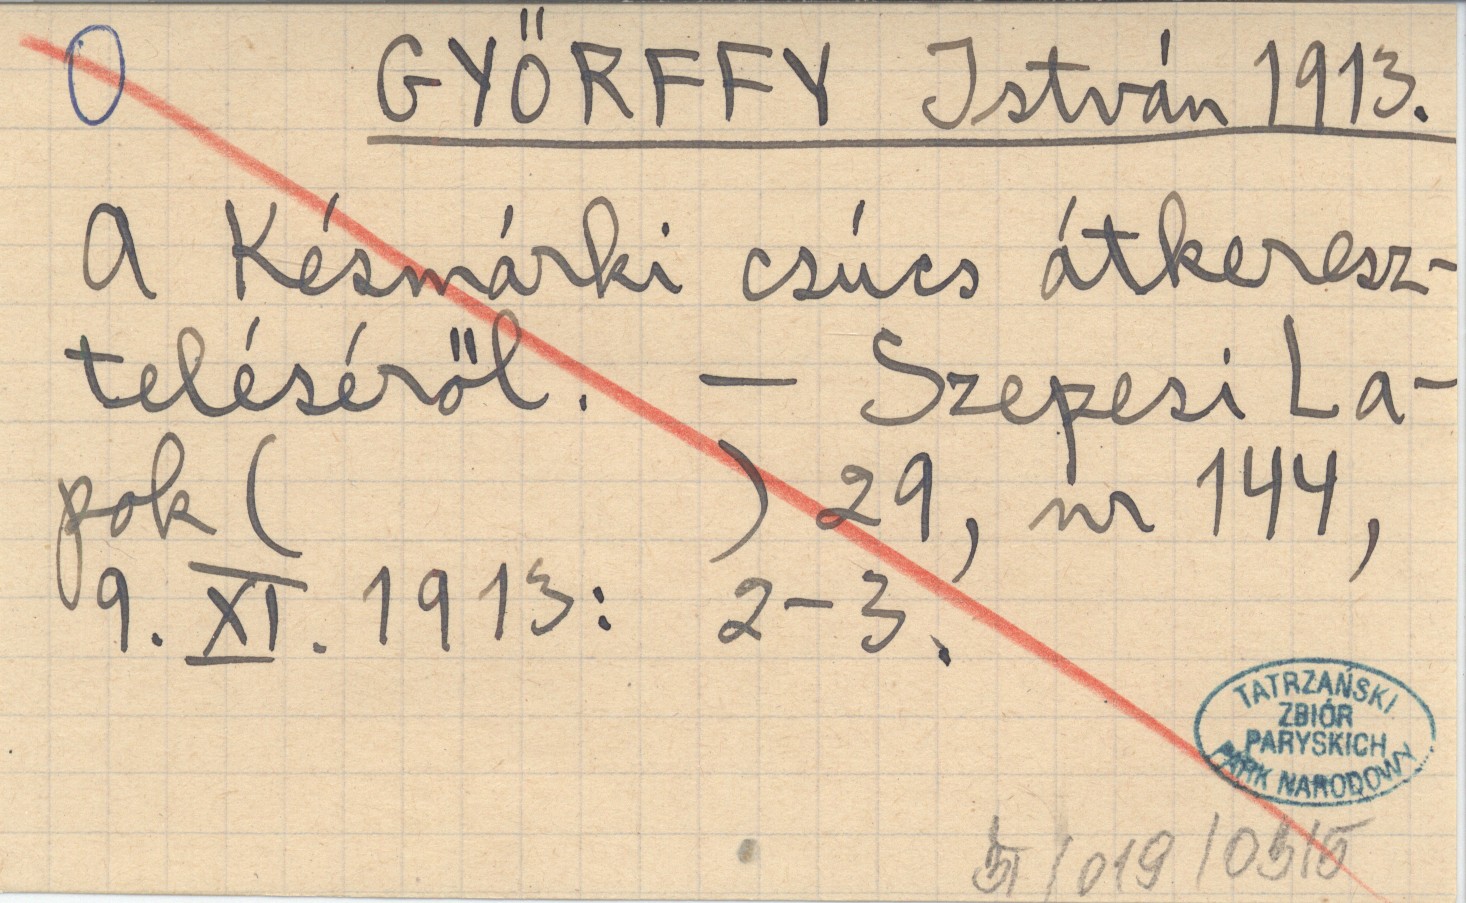 0 GYŐRFFY István 1913.
A Késmárki csúcs átkeresz-
teléséről. — Szepesi La-
pok ( ) 29, nr 144,
9. XI. 1913: 2-3.
TATRZAŃSKI
ZBIÓR
PARYSKICH
PARK NARODOWY
/019/0315